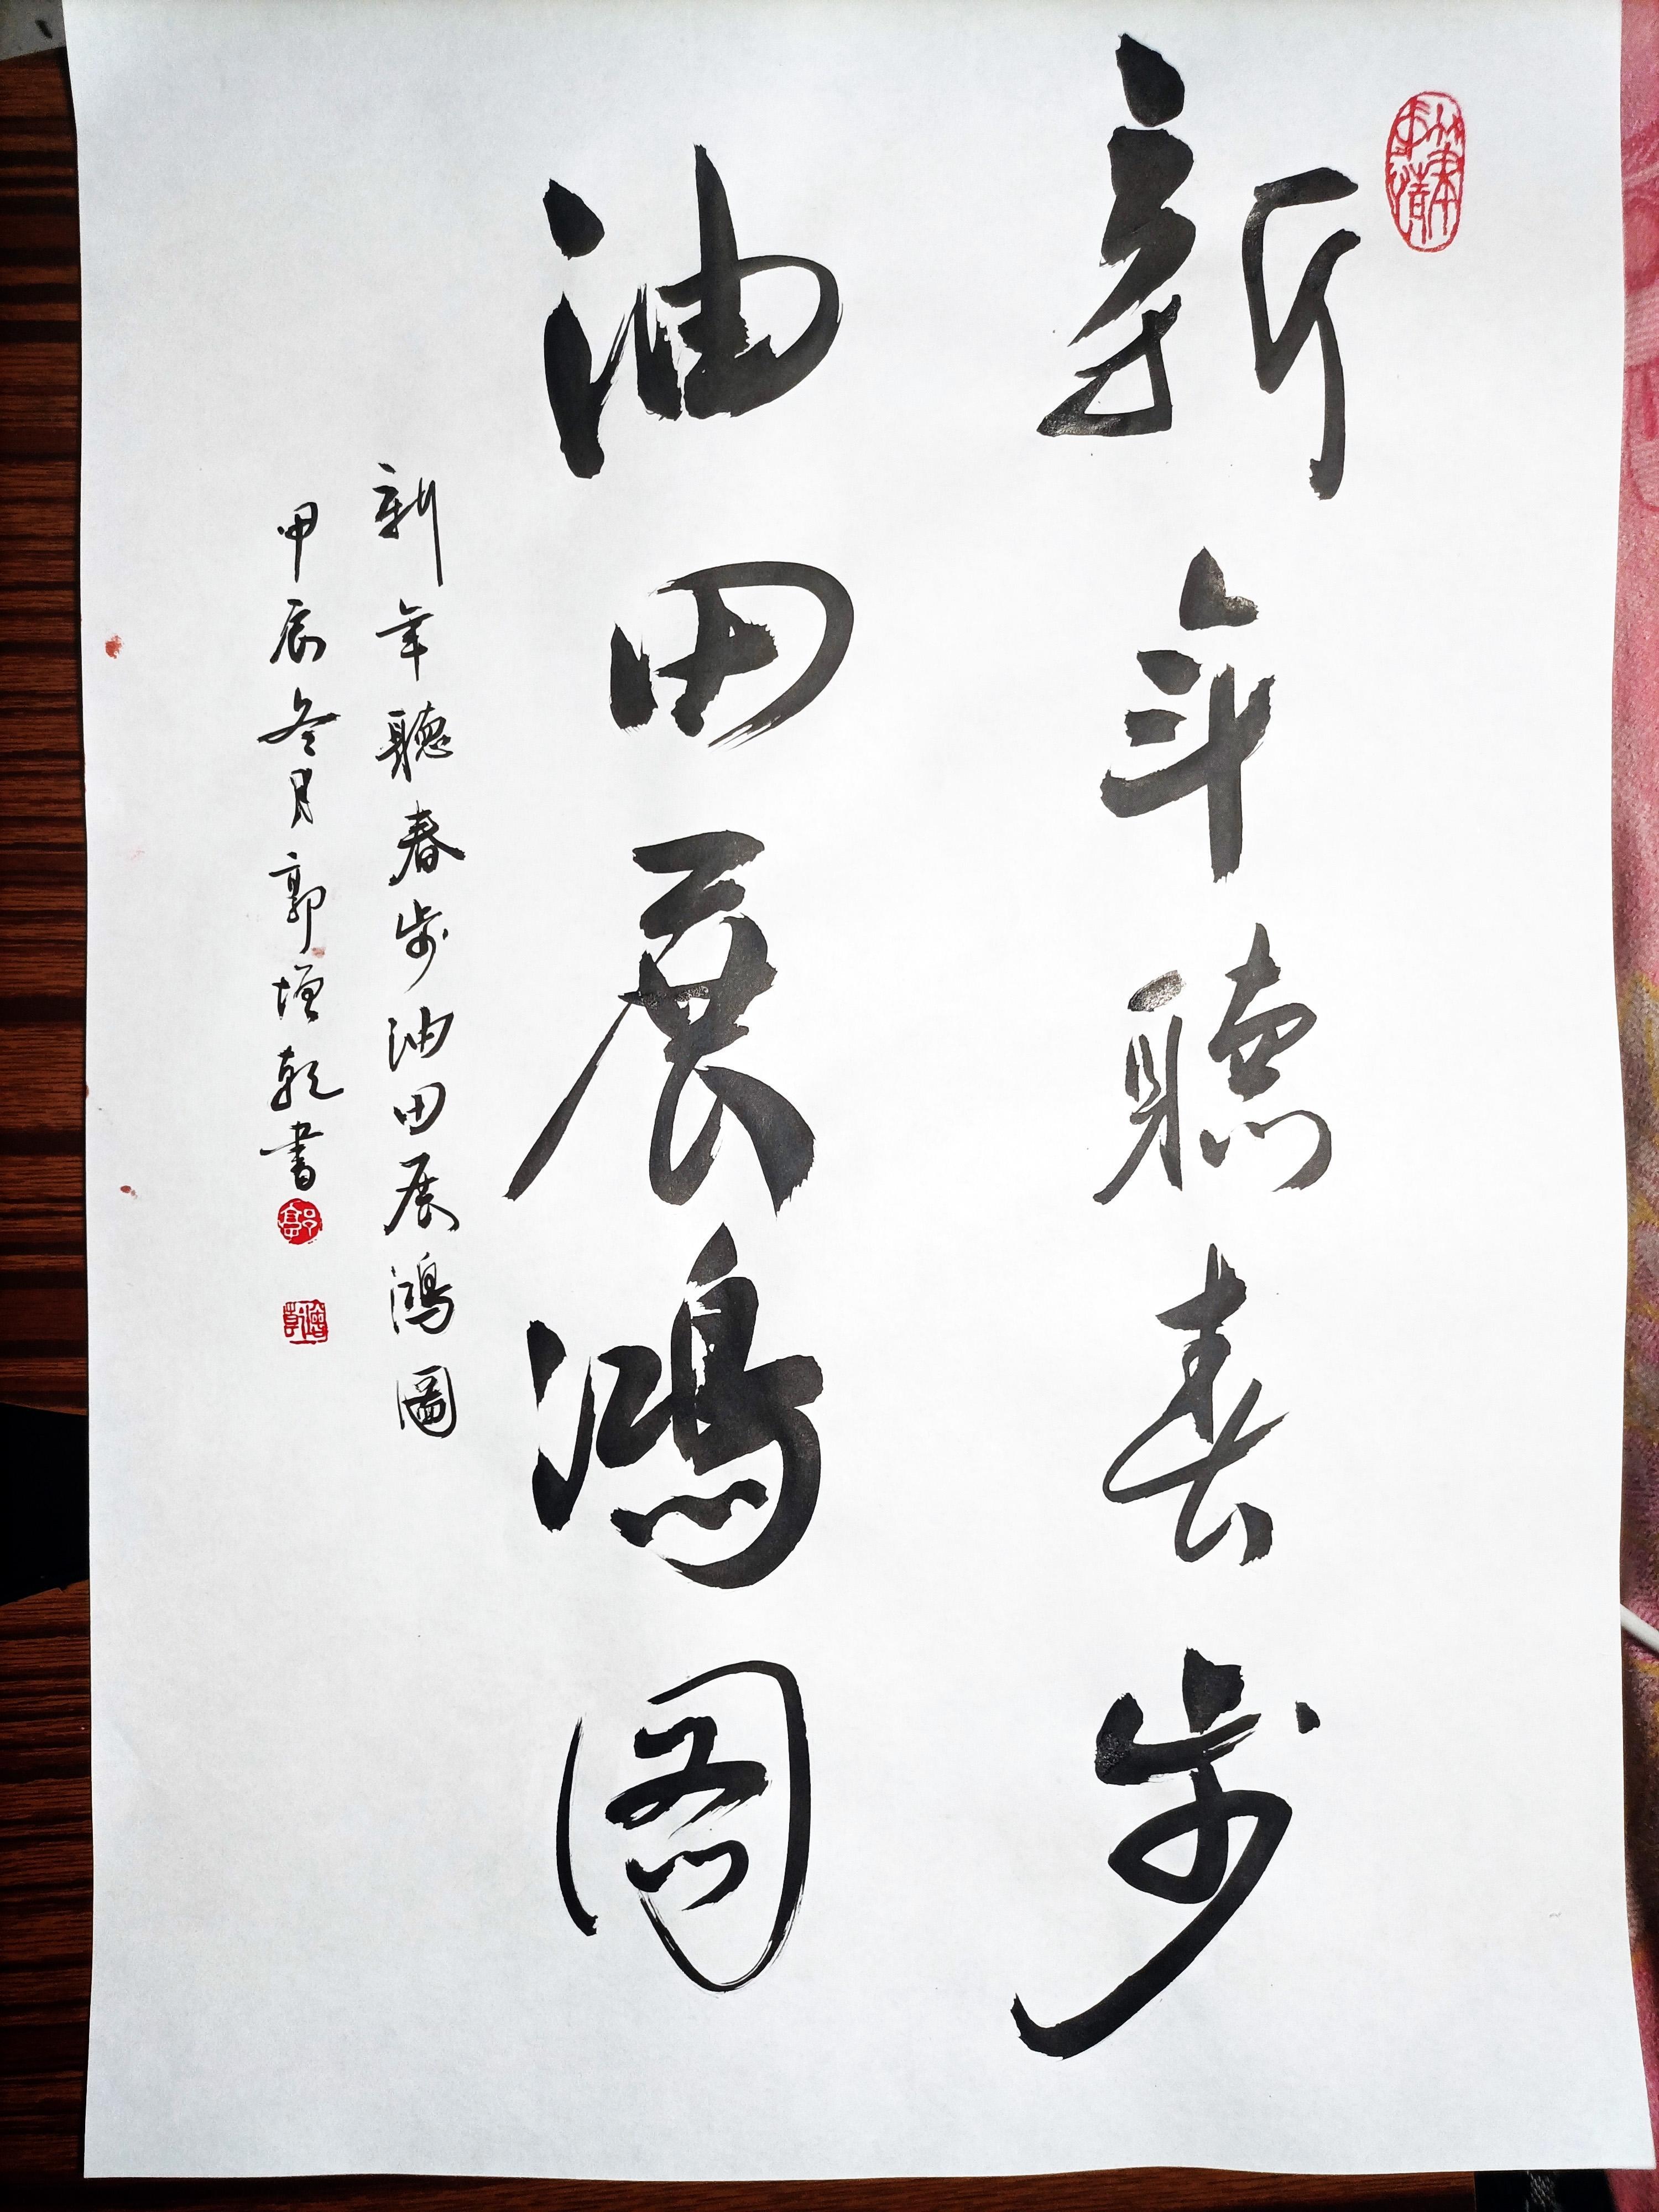 新年聽春步
油田展鴻图
新年聽春步油田展鴻圖
甲辰冬月郭增乾書
郭
增乾